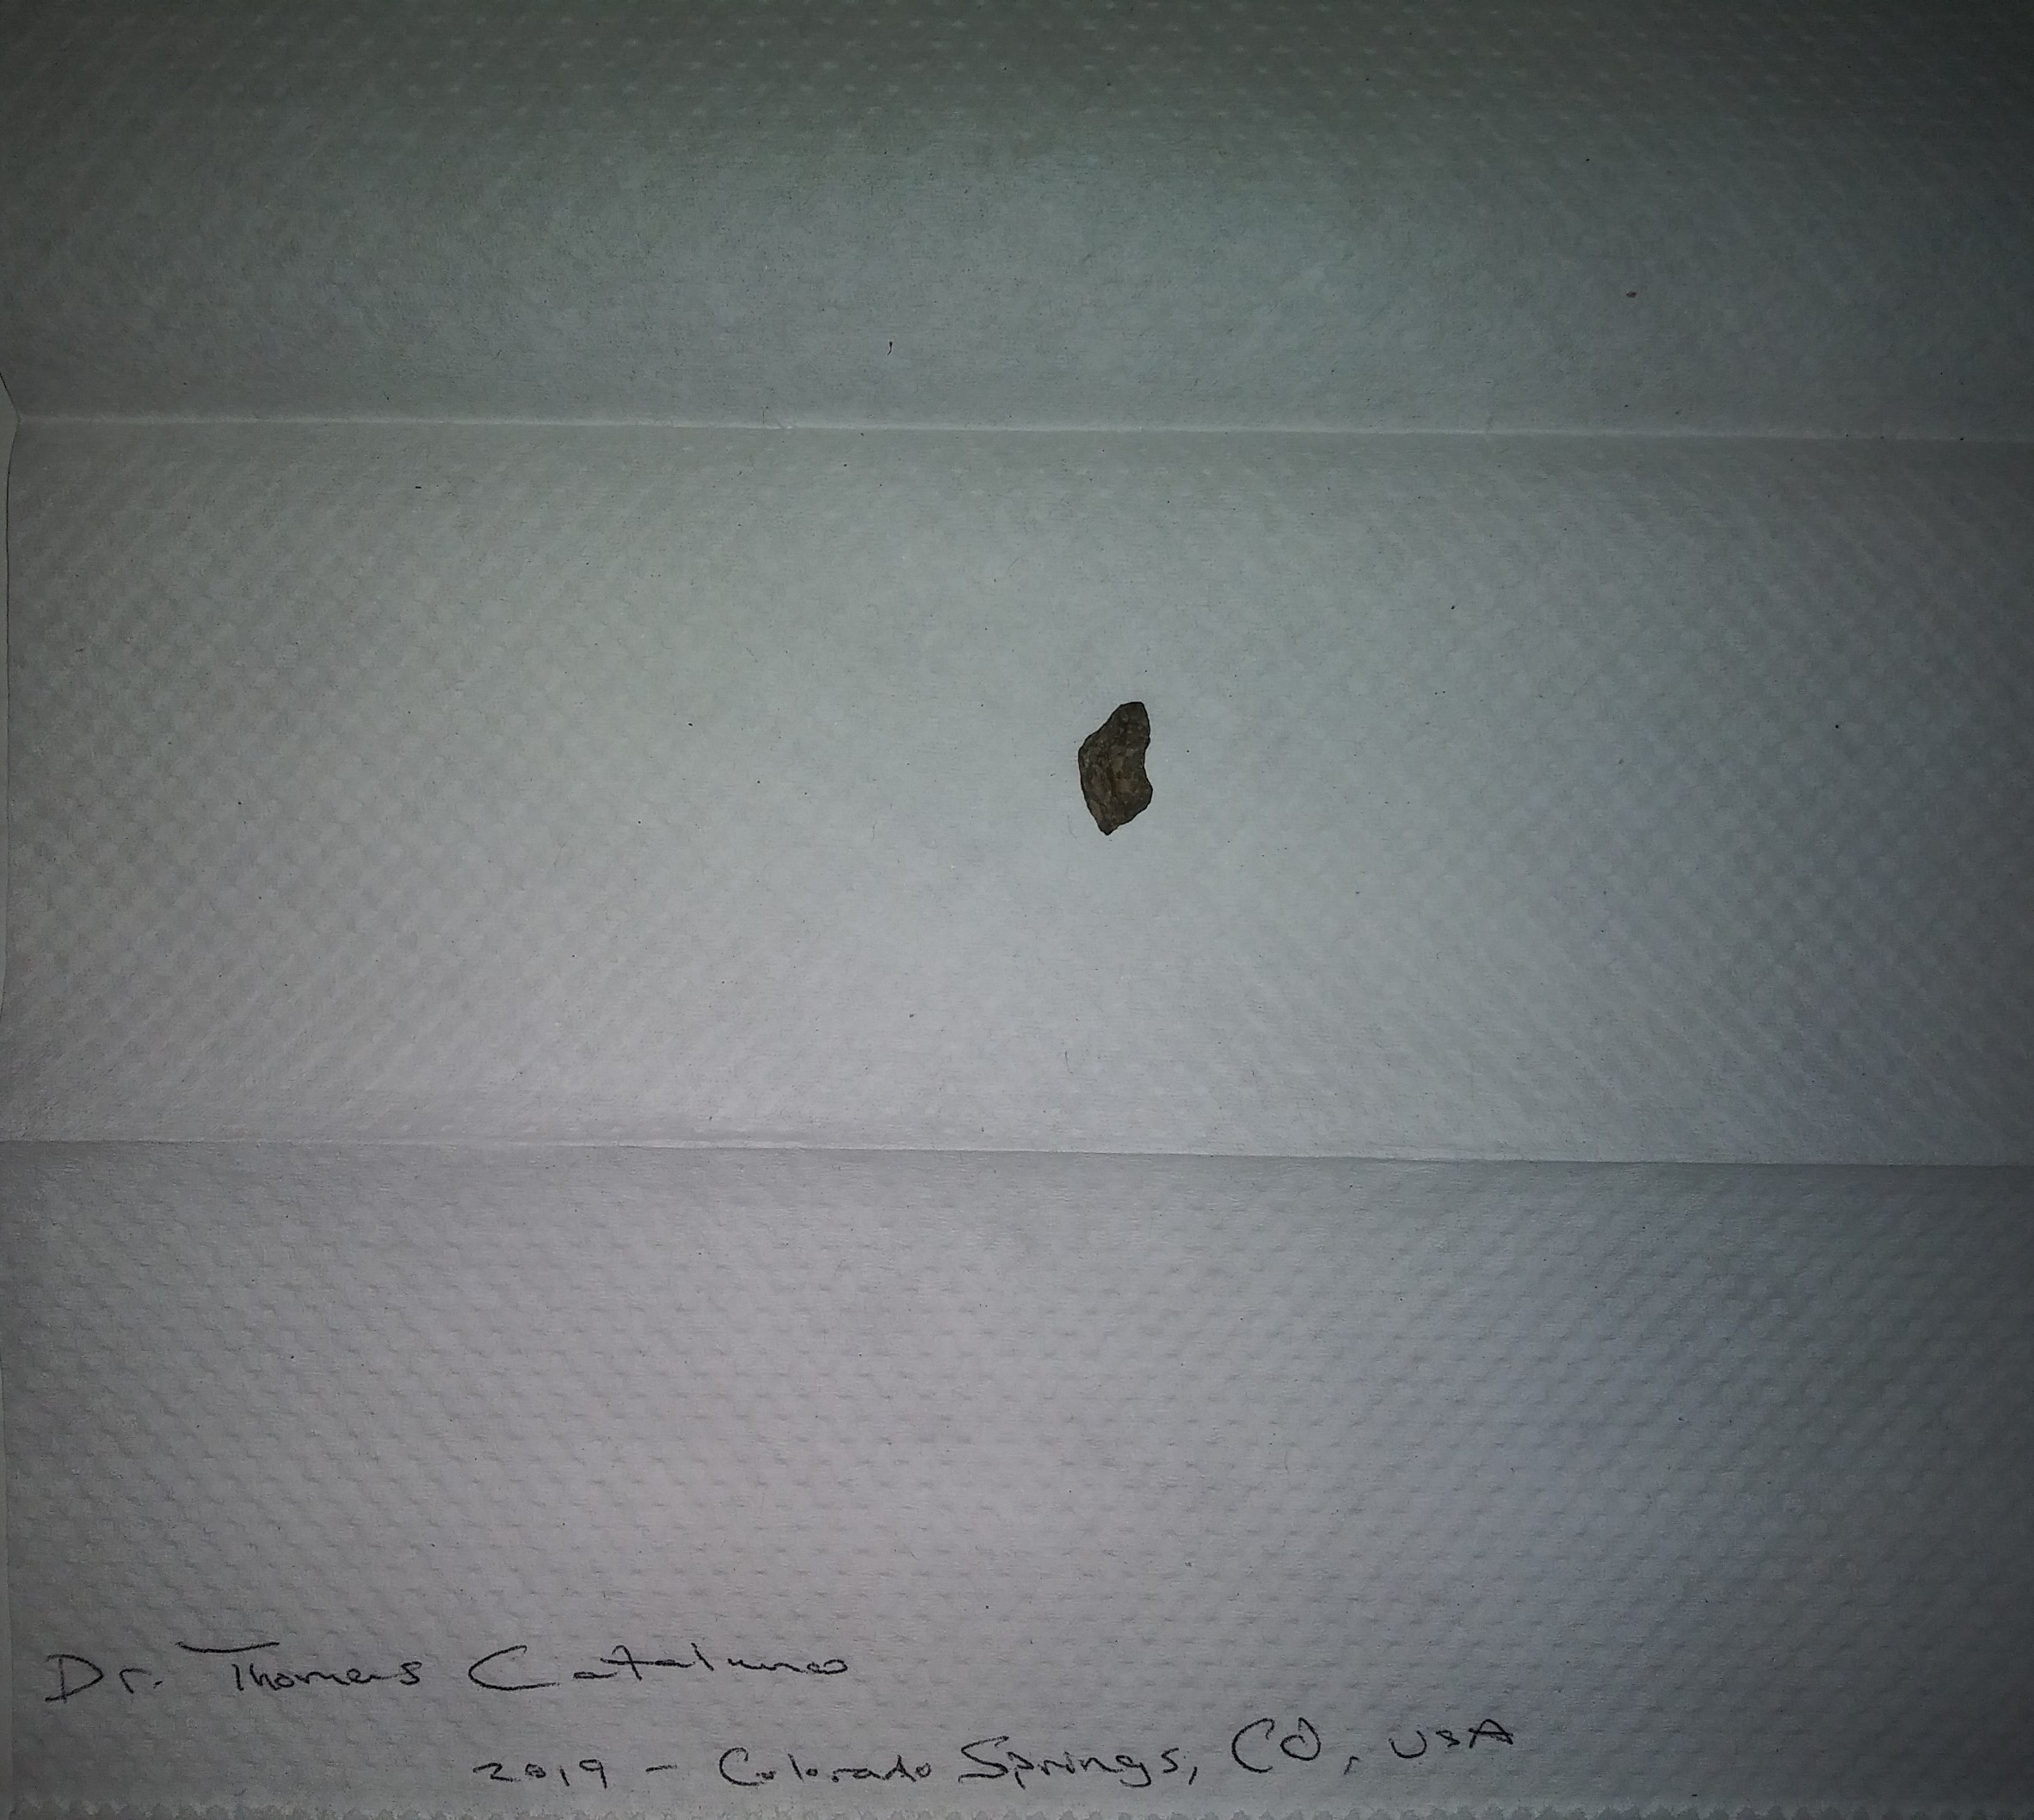 Dr. Thomas
2019 - Colorado Springs, CO, USA